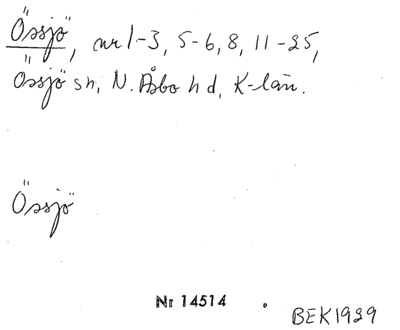 Össjö, nr 1-3, 5-6, 8, 11-25,
Össjö sn, N. Åsbo hd, K-län.
Össjö
Nr 14514
BEK1929